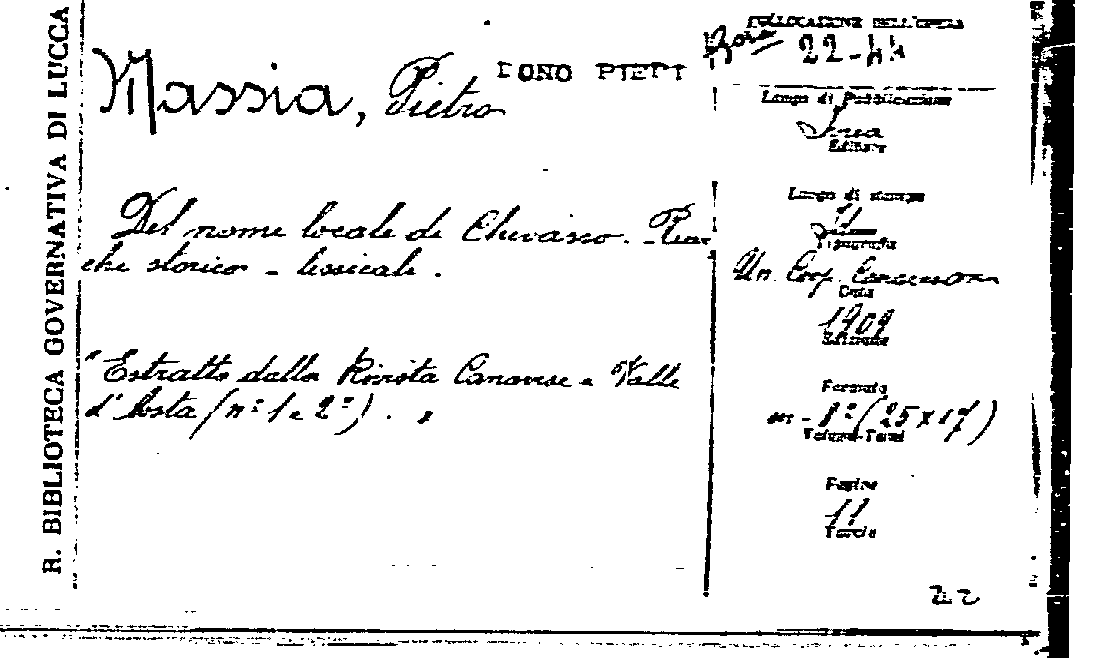 R. BIBLIOTECA GOVERNATIVA DI LUCCA
Massia, Pietro
DONO PIERI
Del nome locale di Chivasso. Ricer
che storico - lessicali.
"Estratto dalla Rivista Canavese e Valle
d'Aosta (n° 1 e 2°). "
COLLOCAZIONE DELL'OPERA
22-44
Luogo di Pubblicazione
Ivrea
Editore
Luogo di stampa
Tipografia
Un. Coop.
Data
1909
Edizione
Formato
in - 8° (25 x 17)
Volumi-Tomi
Pagine
11
Tavole